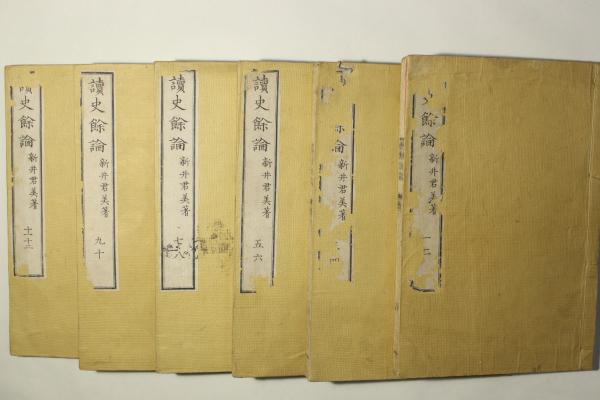 餘論 新井君美著 一二
論 新井君美著
讀史餘論 新井君美著 五六
讀史餘論 新井君美著 七八
史餘論 新井君美著 九十
史餘論 新井君美著 十一十二